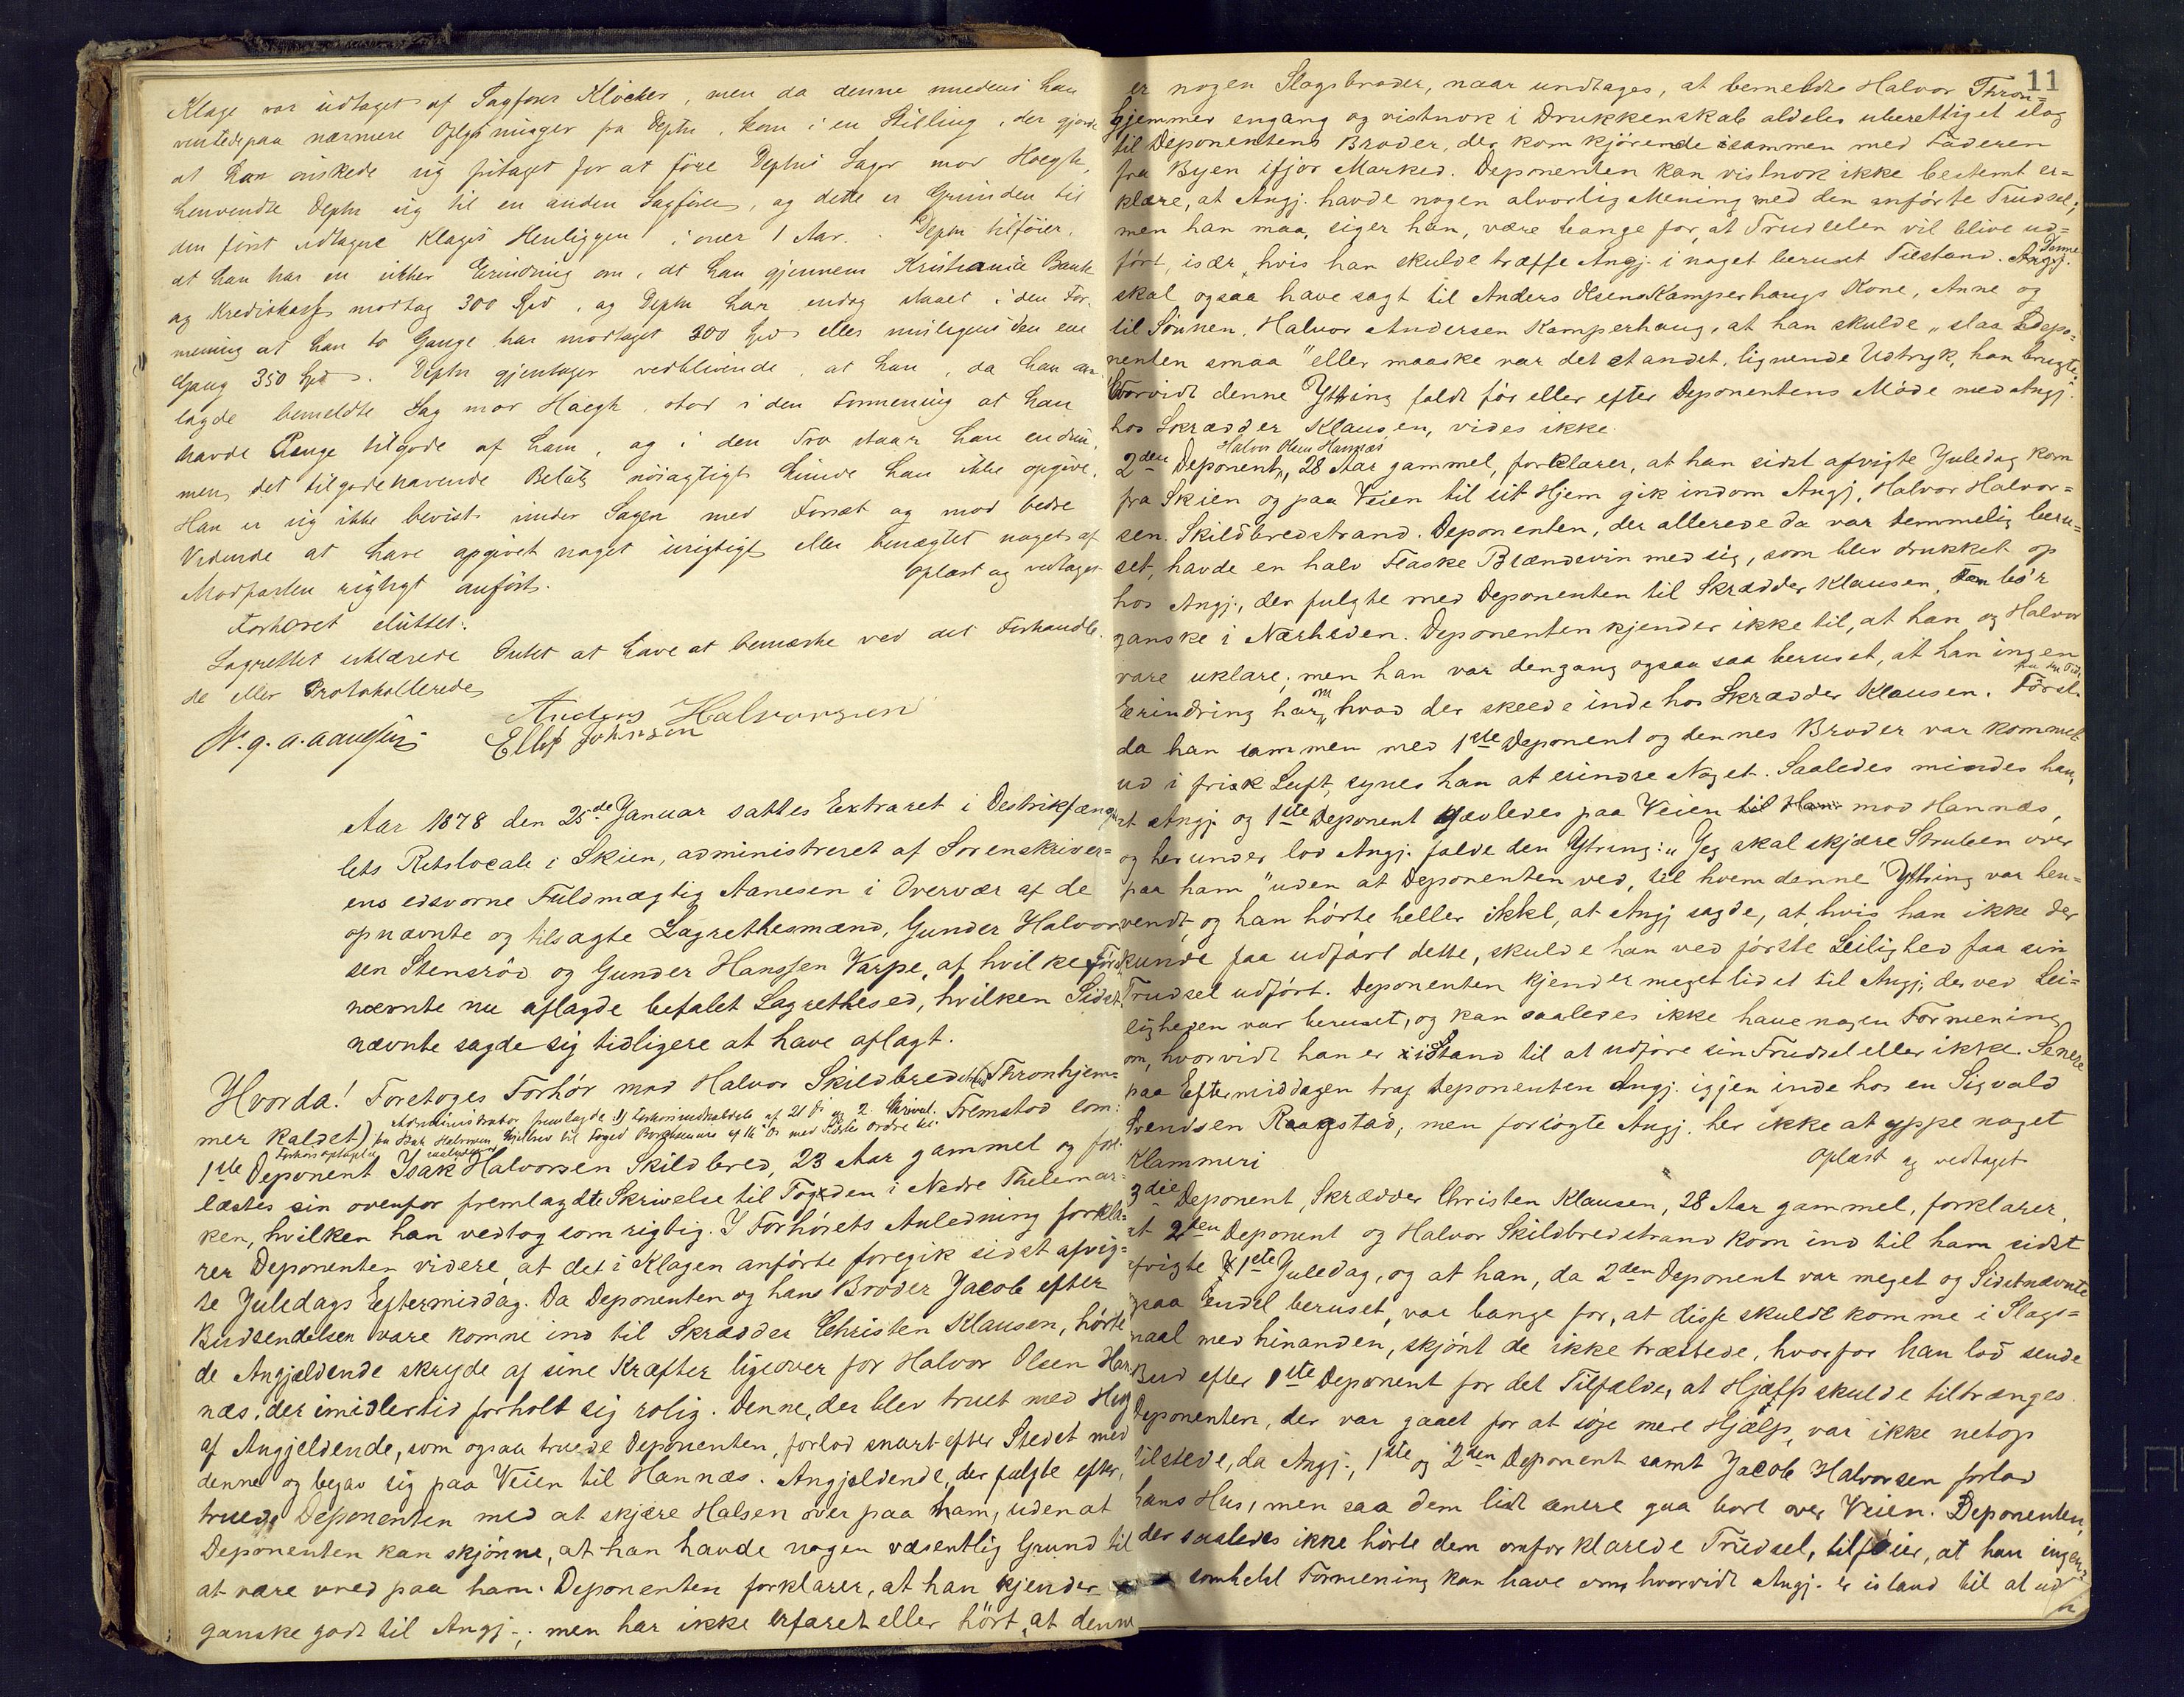 Klage var udtaget af Sagfører Klöcker, men da denne medens han
ventede paa nærmere Oplysninger fra Deptn, kom i en Stilling, der gjorde
at han ønskede sig fritaget for at føre Deptns Sager mod Hoegh,
henvendte Deptn sig til en anden Sagfører, og dette er Grunden til
den først udtagne Klages Henliggen i over 1 Aar. Deptn tilføier,
at han har en sikker Erindring om, at han gjennem Kristiania Bank
og Kreditkasse modtog 300 Spd, og Deptn har endog staaet i den For-
mening at han to Gange har modtaget 300 Spd eller muligens den ene
Gang 350 Spd. Deptn gjentager vedblivende, at han, da han an-
lagde bemeldte Sag mod Hoegh, stod i den Formening at han
havde Penge tilgode af ham, og i den Tro staar han endnu,
men det tilgodehavende Beløb nøiagtigt kunde han ikke opgive.
Han er sig ikke bevist under Sagen med Forsæt og mod bedre
Vidende at have opgivet noget urigtigt eller benægtet noget af
Modparten rigtigt anført. Oplæst og vedtaget
Forhøret sluttet.
Lagrettet erklærede Intet at have at bemærke ved det Forhandle-
de eller Protokollerede
N. g. a. Aanesen Anders Halvorsen
Ellef Johnsen
Aar 1878 den 25de Januar sattes Extraret i Destriktfæng-
lets Retslocale i Skien, administreret af Sorenskriver-
ens edsvorne Fuldmægtig Aanesen i Overvær af de
opnævnte og tilsagte Lagrettesmænd, Gunder Halvor-
sen Stensrød og Gunder Hanssen Varpe, af hvilke Først-
nævnte nu aflagde befalet Lagretteed, hvilken Sidst-
nævnte sagde sig tidligere at have aflagt.
Hvorda! Foretoges Forhør mod Halvor Skildbredstrand Thronhjem-
mer kaldet) Administrator fremlagde 1) Forhørsindkaldelse af 21 ds og 2 Skrivel. Fremstod som:
fra Isak Halvorsen til Foged Borchsenius af 14 ds med Ordre til
Forhørs Optagelse
1ste Deponent Isak Halvorsen Skildbred, 23 Aar gammel og fore-
læstes sin ovenfor fremlagdte Skrivelse til Fogden i Nedre Thelemar-
ken, hvilken han vedtog som rigtig. I Forhørets Anledning forkla-
rer Deponenten videre, at det i Klagen anførte foregik sidst afvig-
te Juledags Eftermiddag. Da Deponenten og hans Broder Jacob efter
Budsendelsen vare komne ind til Skrædder Christen Klausen, hørte
de Angjældende skryde af sine Kræfter ligeover for Halvor Olsen Han-
næs, der imidlertid forholt sig rolig. Denne, der blev truet med Hug
af Angjeldende, som ogsaa truede Deponenten, forlod snart efter Stedet med
denne og begav sig paa Veien til Hannæs. Angjældende, der fulgte efter,
truede Deponenten med at skjære Halsen over paa ham, uden at
Deponenten kan skjønne, at han havde nogen væsentlig Grund til
at være vred paa ham. Deponenten forklarer, at han kjender
ganske godt til Angj.; men har ikke erfaret eller hørt, at denne
11
er nogen Slagsbroder, naar undtages, at bemeldte Halvor Thron-
hjemmer engang og vistnok i Drukkenskab aldeles uberettiget slog
til Deponentens Broder, der kom kjørende isammen med Faderen
fra Byen ifjor Marked. Deponenten kan vistnok ikke bestemt er-
klære, at Angj. havde nogen alvorlig Mening med den anførte Trudsel;
men han maa, siger han, være bange for, at Trudselen vil blive ud-
ført, især, hvis han skulde træffe Angj. i noget beruset Tilstand. Denne
skal ogsaa have sagt til Anders Olsens Kamperhaugs Kone, Anne og
til Sønnen, Halvor Andersen Kamperhaug, at han skulde „slaa Depo-
nenten smaa" eller maaske var det et andet, lignende Udtryk, han brugte.
Hvorvidt denne Yttring faldt før eller efter Deponentens Møde med Angj.
hos Skrædder Klausen, vides ikke.
Halvor Olsen Hannæs
2den Deponent, 28 Aar gammel, forklarer, at han sidst afvigte Juledag kom
fra Skien og paa Veien til sit Hjem gik indom Angj. Halvor Halvor-
sen Skildbredstrand. Deponenten, der allerede da var temmelig beru-
set, havde en halv Flaske Brændevin med sig, som blev drukket op
hos Angj., der fulgte med Deponenten til Skrædder Klausen, som bor
ganske i Nærheden. Deponenten kjender ikke til, at han og Halvor
vare uklare; men han var dengang ogsaa saa beruset, at han ingen
Erindring har om hvad der skeede inde hos Skrædder Klausen. Først
da han sammen med 1ste Deponent og dennes Broder var kommet
ud i frisk Luft, synes han at erindre Noget. Saaledes mindes han,
at Angj. og 1ste Deponent fulgtes paa Veien til Han mod Hannæs,
og herunder lod Angj. falde den Ytring: „Jeg skal skjære Struben over
paa ham" uden at Deponenten ved, til hvem denne Yttring var hen-
vendt, og han hørte heller ikke, at Angj sagde, at hvis han ikke der
kunde faa udført dette, skulde han ved første Leilighed faa sin
Trudsel udført. Deponenten kjender meget lidet til Angj. der ved Lei-
ligheden var beruset, og kan saaledes ikke have nogen Formening
om, hvorvidt han er istand til at udføre sin Trudsel eller ikke. Senere
paa Eftermiddagen traf Deponenten Angj. igjen inde hos en Sigvald
Svendsen Raagstad, men forsøgte Angj. her ikke at yppe noget
Klammeri Oplæst og vedtaget
3die Deponent, Skrædder Christen Klausen, 28 Aar gammel, forklarer,
at 2den Deponent og Halvor Skildbredstrand kom ind til ham sidst
afvigte 1ste Juledag, og at han, da 2den Deponent var meget og Sidstnævnte
ogsaa endel beruset, var bange for, at disse skulde komme i Slags-
maal med hinanden, skjønt de ikke trættede, hvorfor han lod sende
Bud efter 1ste Deponent for det Tilfælde, at Hjælp skulde tiltrænges.
Deponenten, der var gaaet for at søge mere Hjælp, var ikke netop
tilstede, da Angj., 1ste og 2den Deponent samt Jacob Halvorsen forlod
hans Hus, men saa dem lidt senere gaa bort over Veien. Deponenten,
der saaledes ikke hørte den omforklarede Trudsel, tilføier, at han ingen-
somhelst Formening kan have om, hvorvidt Angj. er istand til at ud-